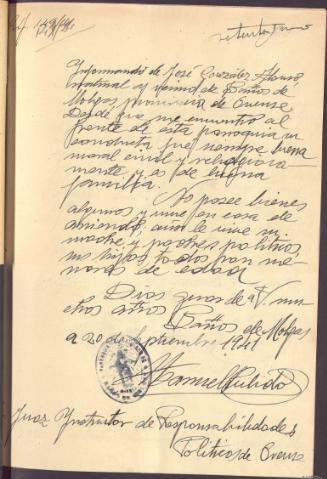 Informando de José González Alonso,
natural y vecino de Baños de
Molgas, provincia de Orense
Desde que me encuentro al
frente de esta parroquia su
conducta fué siempre buena
moral civil y religiosa
mente y es de buena
familia.
No posee bienes
algunos y vive en casa de
arriendo, con le vive su
madre, y padres políticos
sus hijos todos son me
nores de edad
Dios gue a V. mu
chos años Baños de Molgas
a 20 de Septiembre 1941
Manuel
Juez Instructor de Responsabilidades
Políticas de Orense